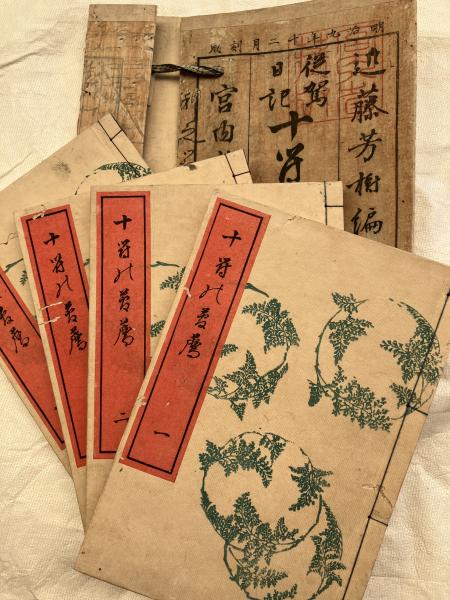 明治九年十二月刻
近藤芳樹編
從駕
日記
十符
宮内
十符の菅薦 一
十符の菅薦 二
十符の菅薦
菅薦